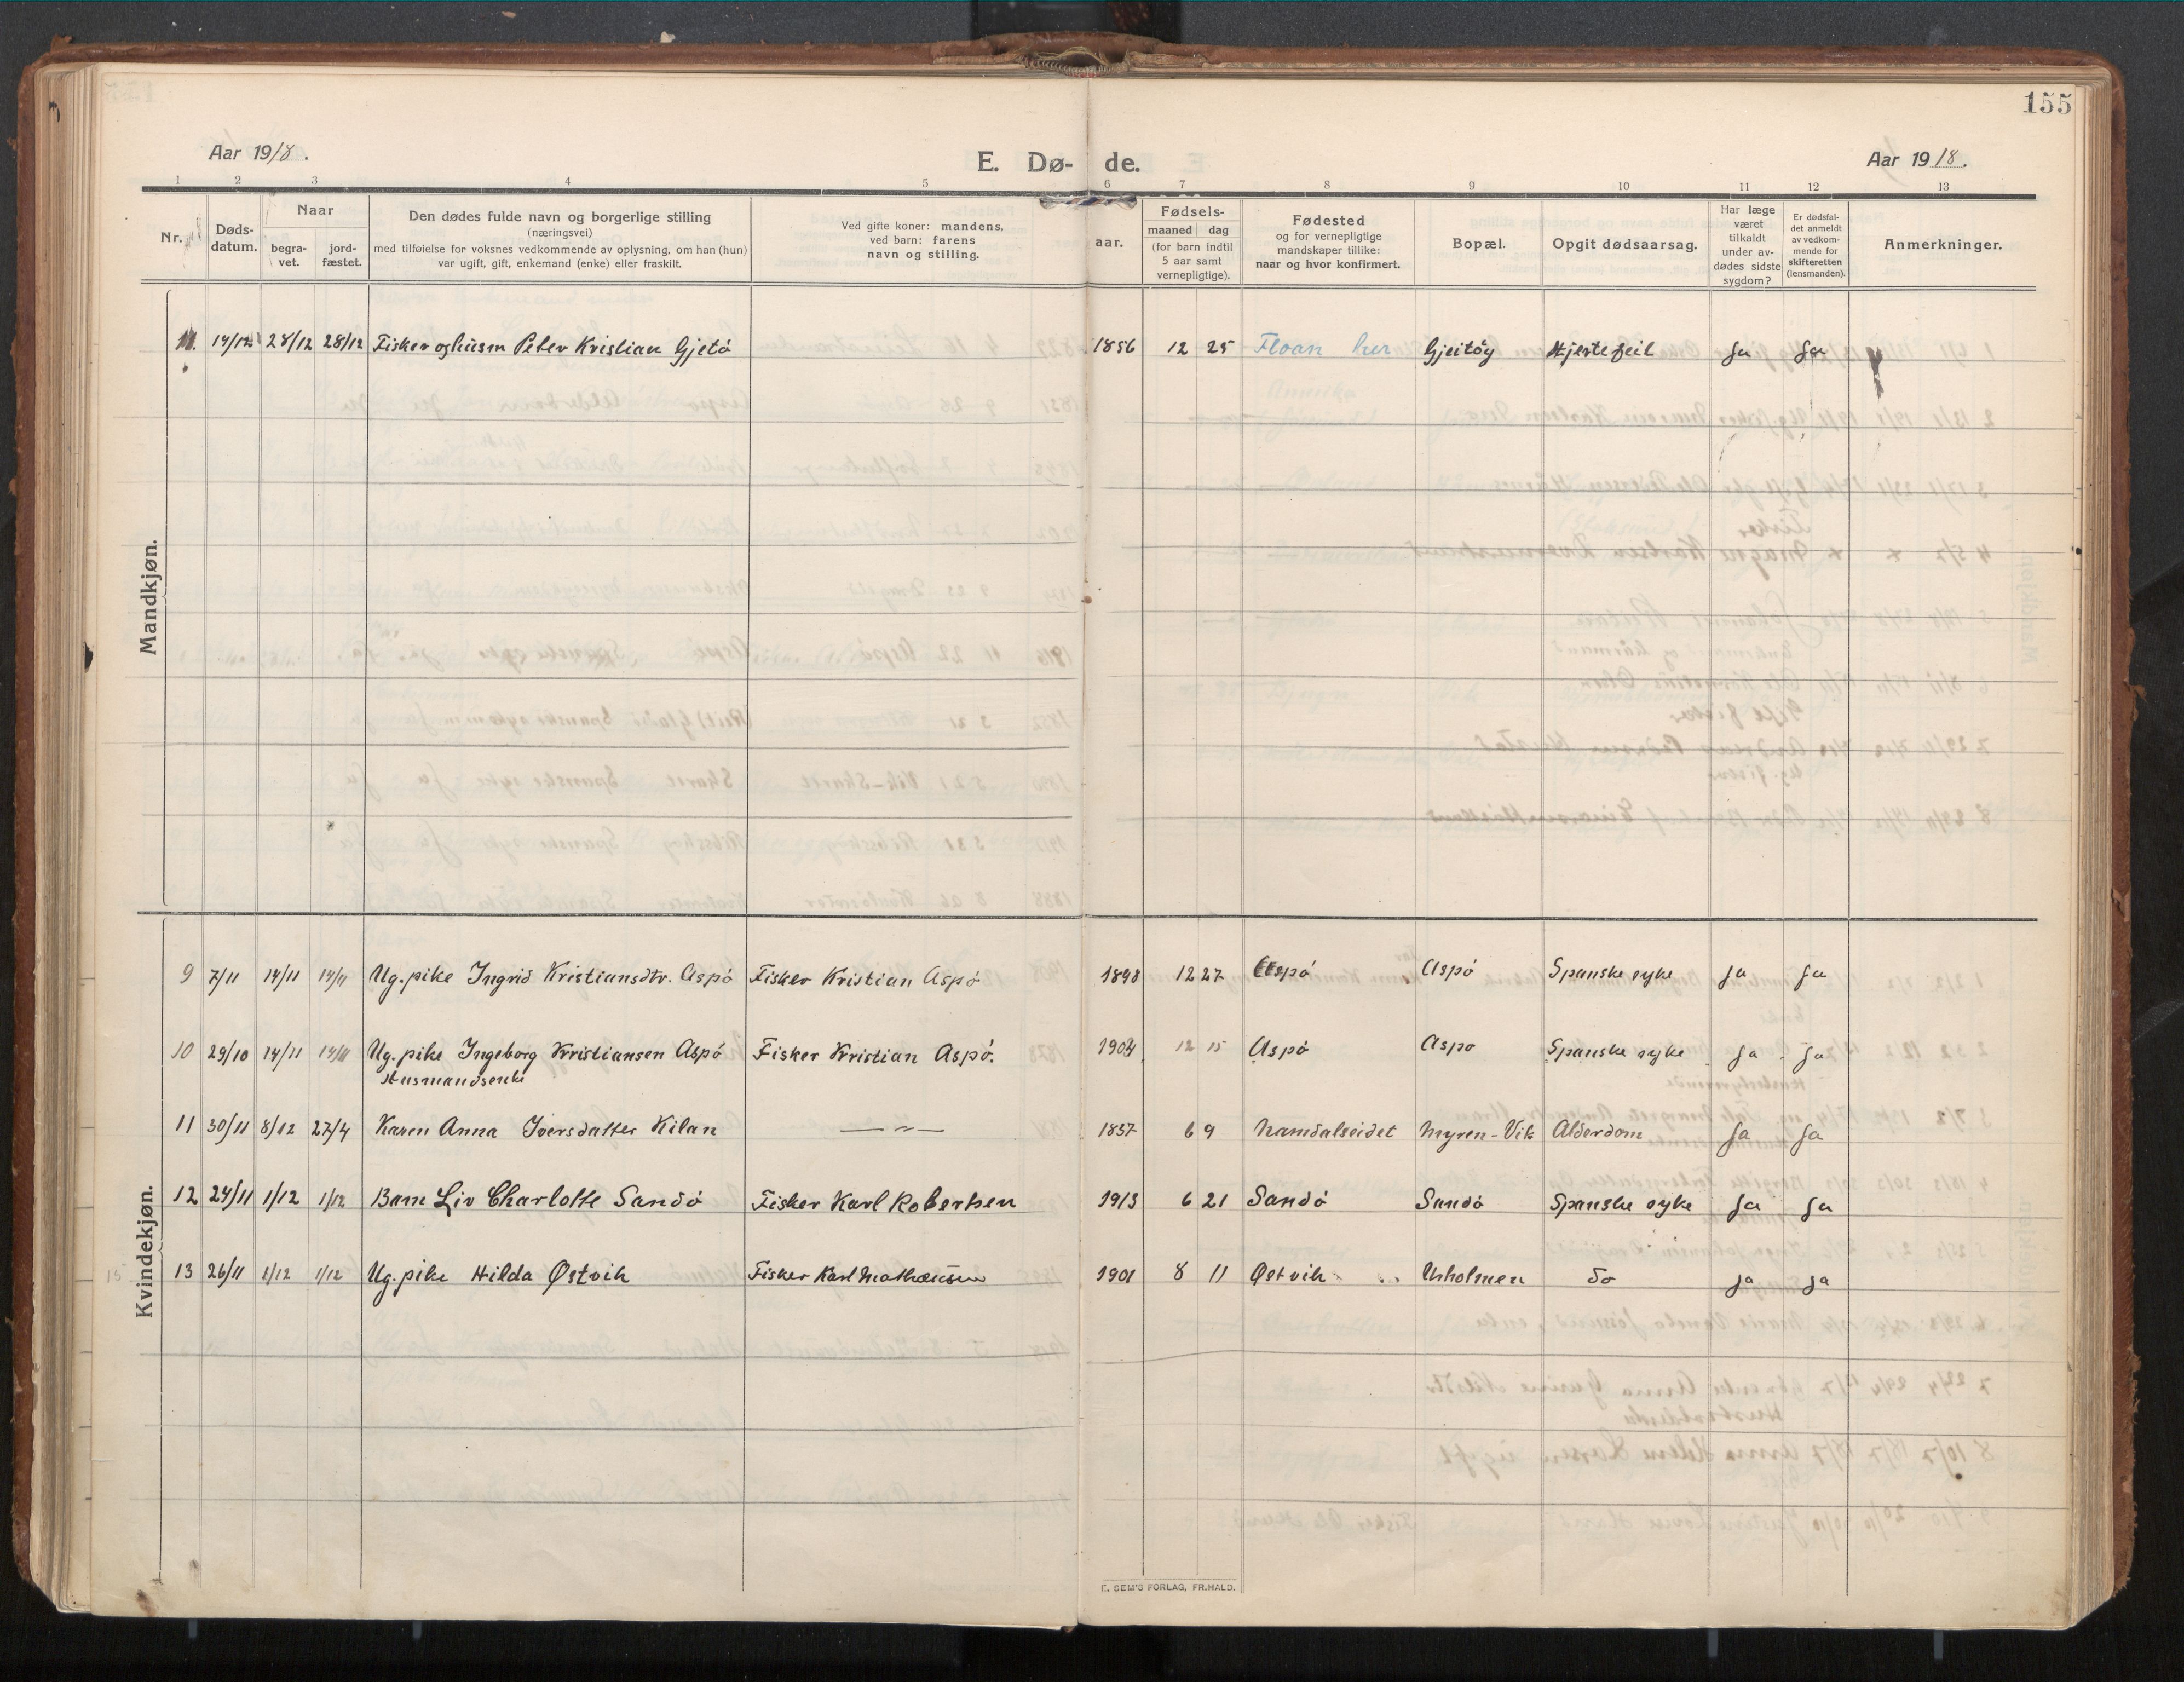 155
Aar 1918.
E. Dø- de.
Aar 1918.
1 2 3 4 5 6 7 8 9 10 11 12 13
Nr.
Døds-
datum.
Naar
begra-
vet.
jord-
fæstet.
Den dødes fulde navn og borgerlige stilling
(næringsvei)
med tilføielse for voksnes vedkommende av oplysning, om han (hun)
var ugift, gift, enkemand (enke) eller fraskilt.
Ved gifte koner: mandens,
ved barn: farens
navn og stilling.
aar.
Fødsels-
maaned dag
(for barn indtil
5 aar samt
vernepligtige).
Fødested
og for vernepligtige
mandskaper tillike:
naar og hvor konfirmert.
Bopæl.
Opgit dødsaarsag.
Har læge
været
tilkaldt
under av-
dødes sidste
sygdom?
Er dødsfal-
det anmeldt
av vedkom-
mende for
skifteretten
(lensmanden).
Anmerkninger.
Mandkjøn.
11. 19/12 28/12 28/12 Fisker og husm Peter Kristian Gjetø 1856 12 25 Floan her Gjeitöy Hjertefeil Ja Ja
Kvindekjøn.
9 7/11 14/11 14/11 Ug. pike Ingrid Kristiansdtr. Aspö Fisker Kristian Aspö 1898 12 27 Aspö Aspö Spanske syke Ja Ja
10 29/10 14/11 14/11 Ug. pike Ingeborg Kristiansen Aspö Fisker Kristian Aspö. 1904 12 15 Aspö Aspo Spanske syke Ja Ja
Husmandsenke
11 30/11 8/12 27/4 Karen Anna Iversdatter Kilan —„— 1837 6 9 Namdalseidet Myren-Vik Alderdom Ja Ja
12 24/11 1/12 1/12 Barn Liv Charlotte Sandö Fisker Karl Robertsen 1913 6 21 Sandö Sandö Spanske syke Ja Ja
13 26/11 1/12 1/12 Ug. pike Hilda Østvik Fisker Karl Mathæusen 1901 8 11 Østvik Urholmen do Ja Ja
E. SEM'S FORLAG, FR.HALD.